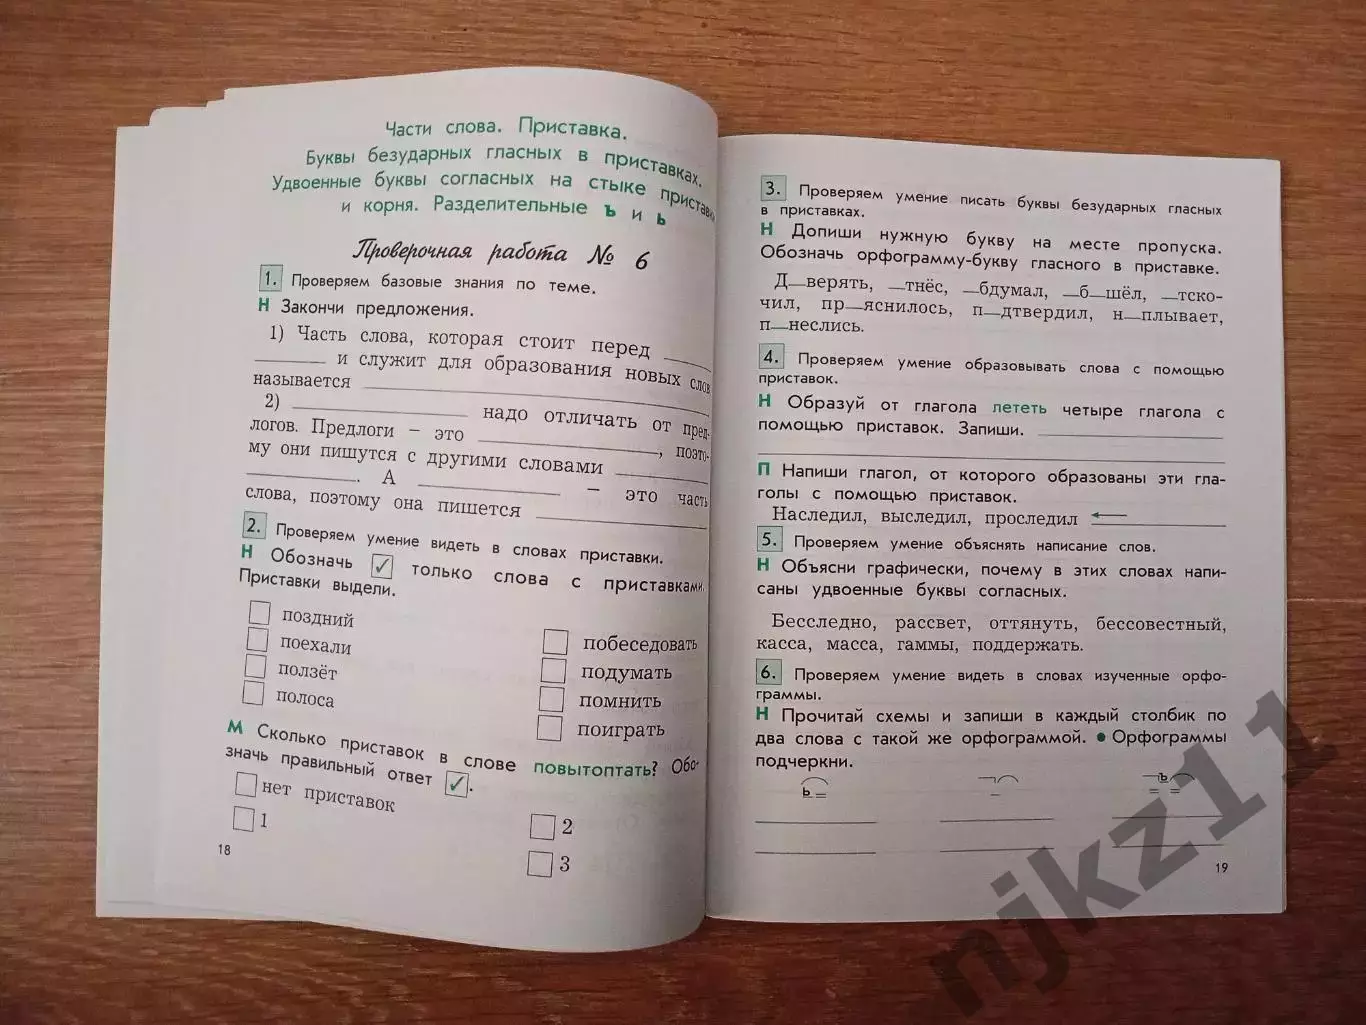 Части слова. Приставка.
Буквы безударных гласных в приставках.
Удвоенные буквы согласных на стыке приставки
и корня. Разделительные ъ и ь
Проверочная работа № 6
1. Проверяем базовые знания по теме.
Н Закончи предложения.
1) Часть слова, которая стоит перед ____
____ и служит для образования новых слов
называется ____
2) ____ надо отличать от пред-
логов. Предлоги – это ____, поэто-
му они пишутся с другими словами ____
____. А ____ – это часть
слова, поэтому она пишется ____
2. Проверяем умение видеть в словах приставки.
Н Обозначь ✓ только слова с приставками.
Приставки выдели.
поздний
поехали
ползёт
полоса
побеседовать
подумать
помнить
поиграть
М Сколько приставок в слове повытоптать? Обо-
значь правильный ответ ✓.
нет приставок
1
2
3
18
3. Проверяем умение писать буквы безударных гласных
в приставках.
Н Допиши нужную букву на месте пропуска.
Обозначь орфограмму-букву гласного в приставке.
Д__верять, __тнёс, __бдумал, __б__шёл, __тско-
чил, пр__яснилось, п__дтвердил, н__плывает,
п__неслись.
4. Проверяем умение образовывать слова с помощью
приставок.
Н Образуй от глагола лететь четыре глагола с
помощью приставок. Запиши. ____
П Напиши глагол, от которого образованы эти гла-
голы с помощью приставок.
Наследил, выследил, проследил ← ____
5. Проверяем умение объяснять написание слов.
Н Объясни графически, почему в этих словах напи-
саны удвоенные буквы согласных.
Бесследно, рассвет, оттянуть, бессовестный,
касса, масса, гаммы, поддержать.
6. Проверяем умение видеть в словах изученные орфо-
граммы.
Н Прочитай схемы и запиши в каждый столбик по
два слова с такой же орфограммой. • Орфограммы
подчеркни.
ь
ъ
19
njkz11